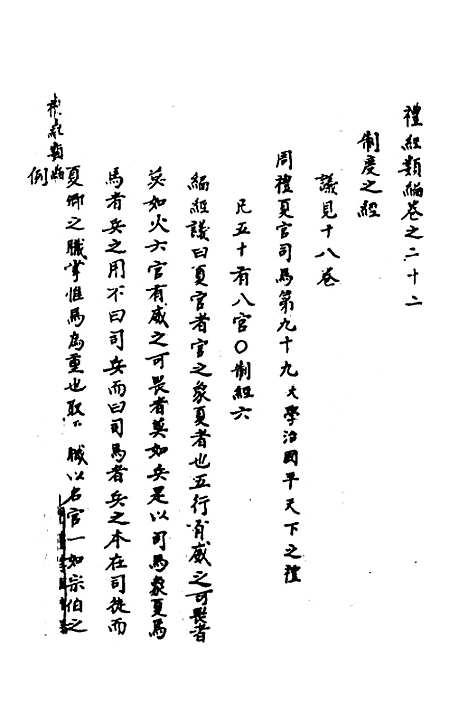 禮經類編卷之二十二
制度之經
議見十八卷
周禮夏官司馬第九十九大學治國平天下之禮
凡五十有八官〇制經六
編經議曰夏官者官之象夏者也五行有威之可畏者
莫如火六官有威之可畏者莫如兵是以司馬象夏焉
馬者兵之用不曰司兵而曰司馬者兵之本在司徒而
夏卿之職掌惟馬為重也取 職以名官一如宗伯之
例
禮經類編